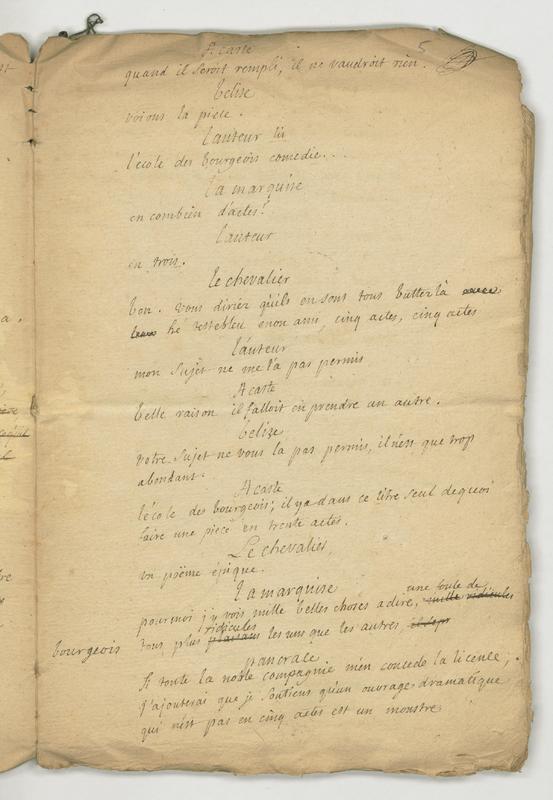 5
Acaste
quand il seroit rempli, il ne vaudroit rien.
belise
voions la piece.
l'auteur lit
l'école des bourgeois comedie...
la marquise
en combien d'actes?
l'auteur
en trois.
le chevalier
bon. vous diriez qu'ils en sont tous butter là
hé testebleu mon ami, cinq actes, cinq actes
l'auteur
mon sujet ne me l'a pas permis
Acaste
belle raison il falloit en prendre un autre.
belise
votre sujet ne vous l'a pas permis, il n'est que trop
abondant.
Acaste
l'école des bourgeois; il y a dans ce titre seul de quoi
faire une piece en trente actes.
Le chevalier
un poëme épique.
la marquise
pour moi j'y vois mille belles choses a dire, une foule de mille ridicules
bourgeois tous plus ridicules plaisans les uns que les autres
pancrace
Si toute la noble compagnie m'en concede la licence,
j'ajouterai que je soutiens qu'un ouvrage dramatique
qui n'est pas en cinq actes est un monstre